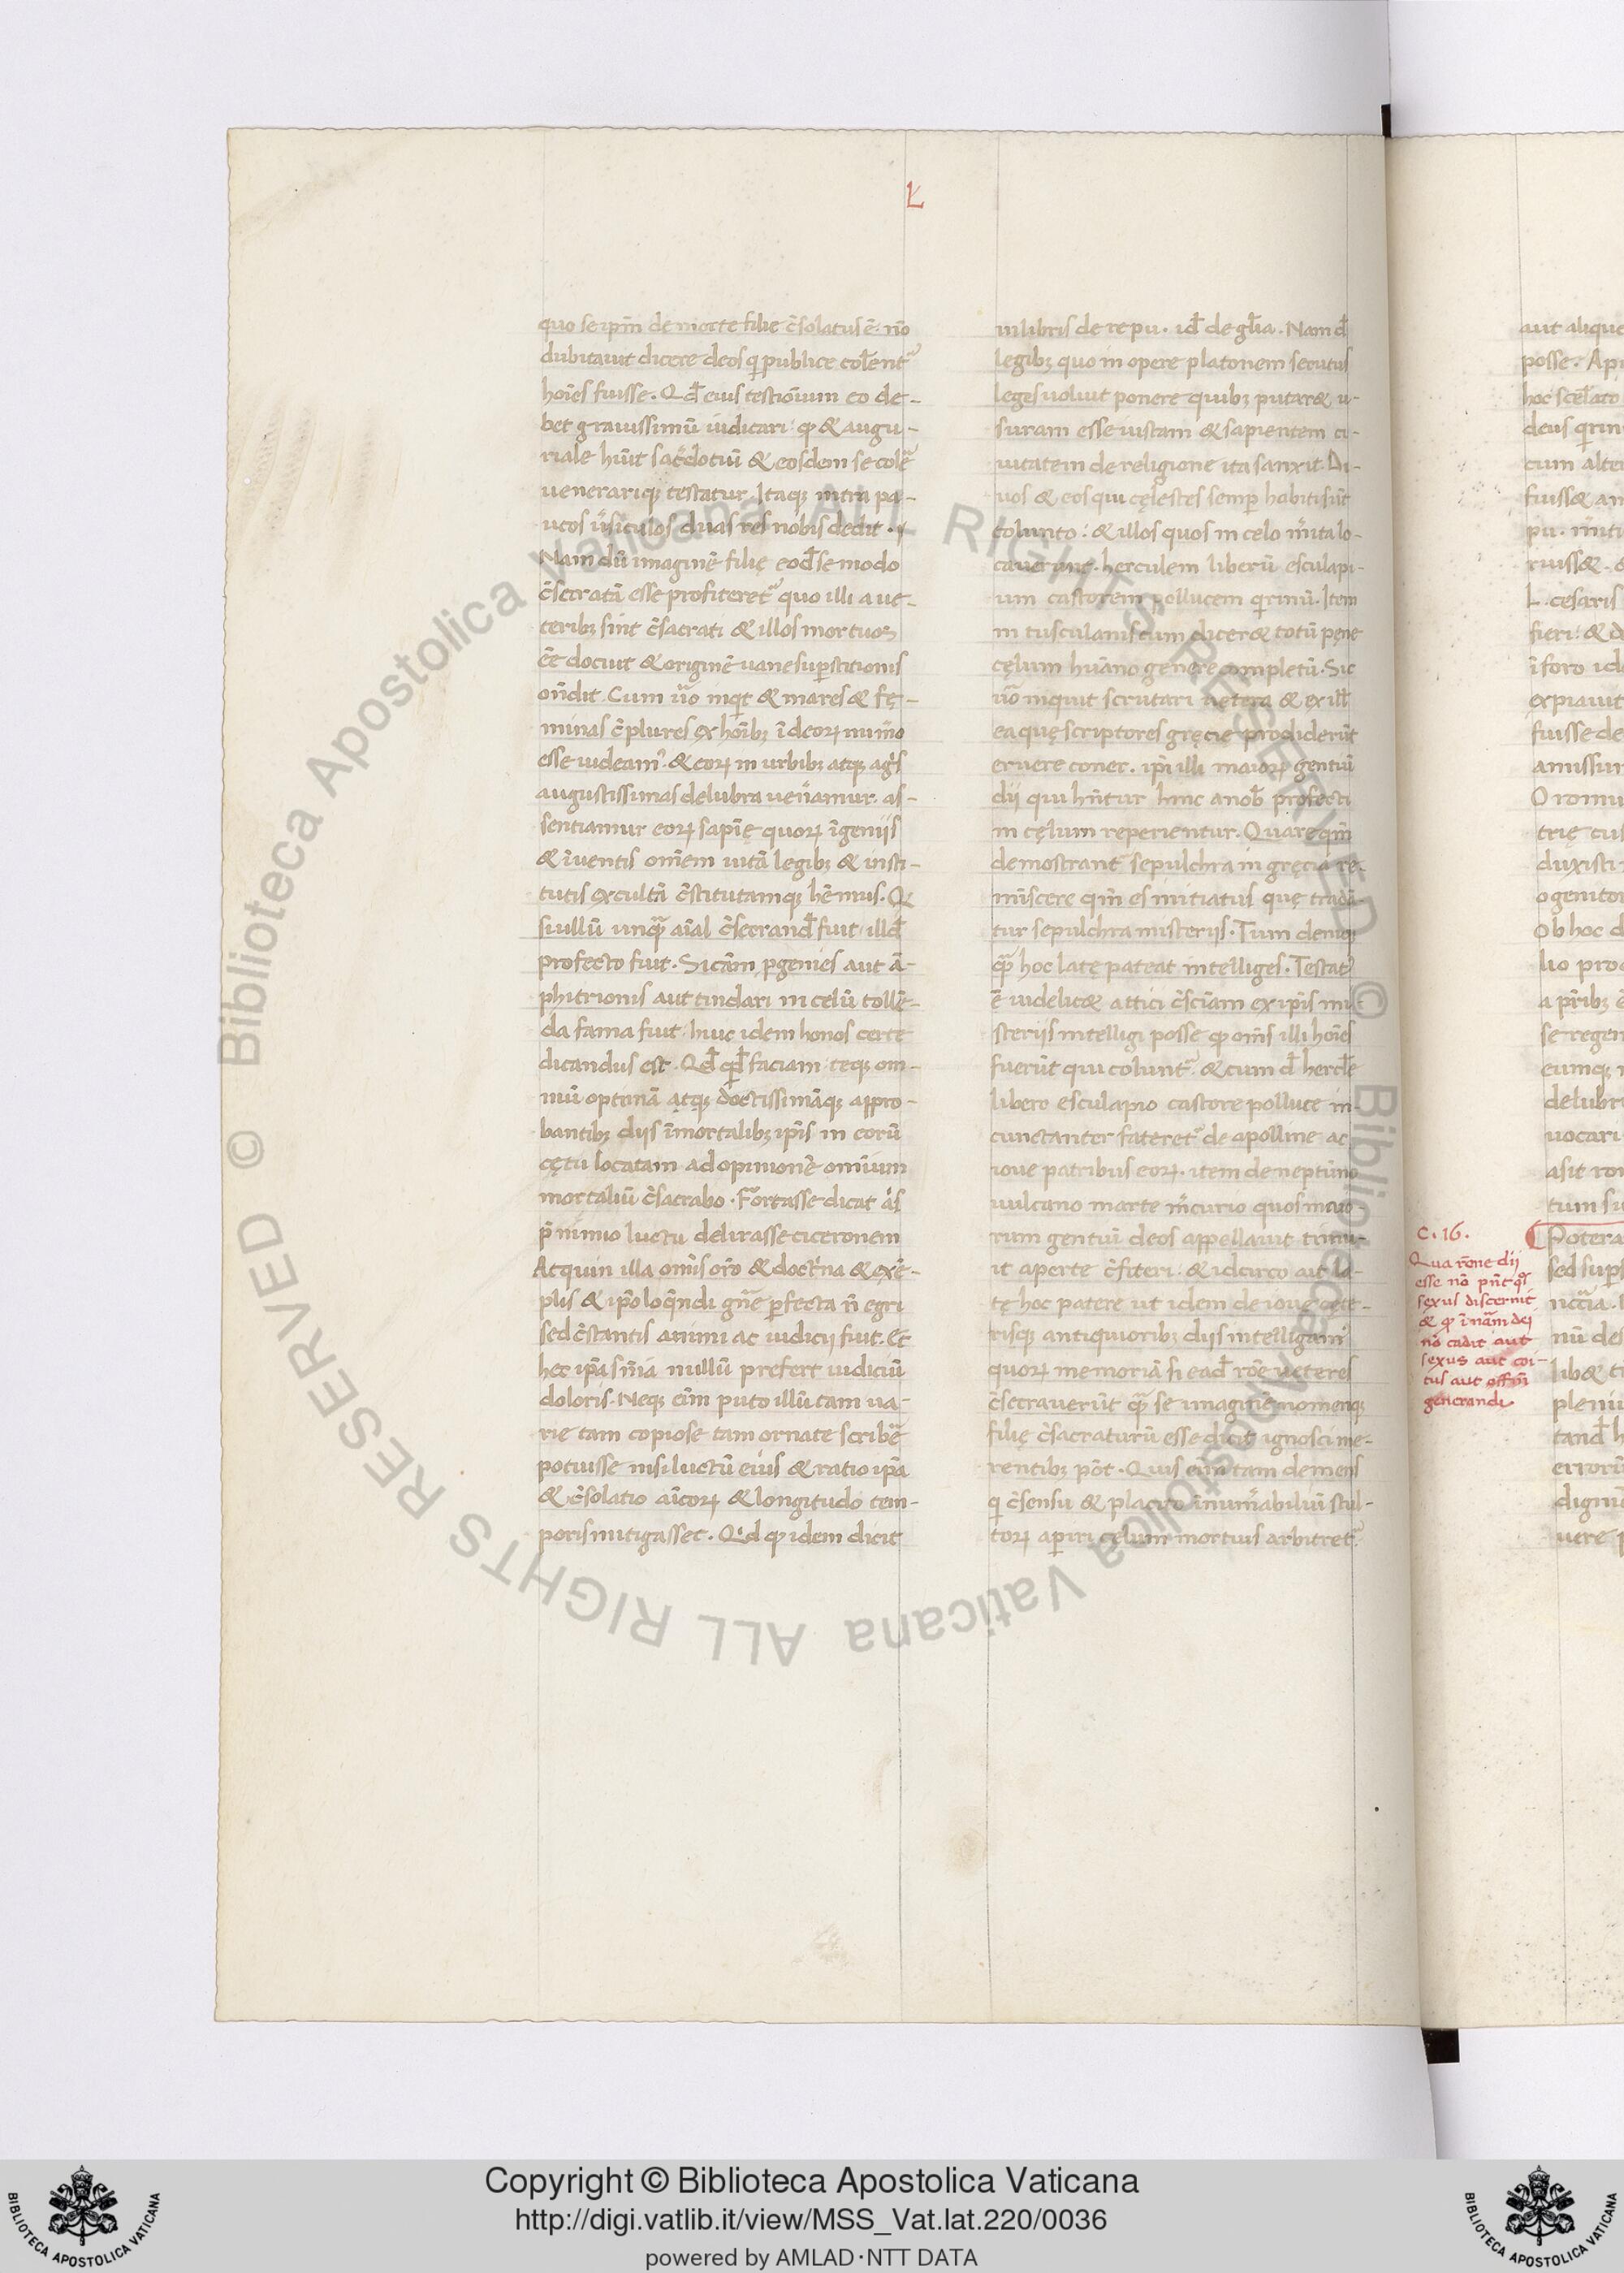 Ł
quo seip̄m de morte filie c̄solatus ē: nō
dubitauit dicere deos q̇ publice colerent᷑
hoīes fuisse. Qđ eius testiōnium eo de-
bet grauissimū iudicari: ꝙ & augu-
riale hūit sac̄dotiū & eosdem se colē
uenerariq; testatur. Itaq; intra pa-
ucos ūsiculos duas res nobis dedit.
Nam dū imaginē filię eođ se modo
c̄secratā esse profiteret᷑ quo illi a ue-
terib; sint c̄sacrati & illos mortuos
ēe docuit & originē uane sup̄stitionis
on̄dit. Cum ūo inqt & mares & fę-
minas c̄plures ex hoīb; ī deoꝝ nūmo
esse uideam᷒. & eoꝝ in urbib; atq; agis
augustissimas delubra uen̄amur. as-
sentiamur eoꝝ sapīę quoꝝ īgeniis
& īuentis om̄em uitā legib; & insti-
tutis excultā c̄stitutamq; hēmus. Q
si ullū unq̄ aīal c̄secranđ fuit illđ
profecto fuit. Si cām ꝓgenies aut ā-
phitrionis aut tindari in celū tollē-
da fama fuit. huic idem honos certe
dicandus est. Qđ qđ faciam teq; om-
niū optimā atq; doctissimāq; appro-
bantib; diis īmortalib; ip̄is in eorū
cętu locatam ad opinionē omium
mortaliū c̄sacrabo. Fortasse dicat aīs
p̄ nimio luctu delirasse ciceronem
Atquin illa om̄is orō & doctrīna & exē-
plis & ip̄o loq̄ndi gn̄e p̄fecta n̄ egri
sed c̄stantis animi ac iudicii fuit. Et
hec ip̄a sn̄ia nullū prefert iudiciū
doloris. Neq; eim puto illū tam ua-
rie tam copiose tam ornate scribē
potuisse nisi luctū eius & ratio ip̄a
& c̄solatio aīcoꝝ & longitudo tem-
poris mitigasset. Qd ꝙ idem dicit
in libris de re pu. iđ de gl̄ia. Nam đ
legib; quo in opere platonem secutus
leges uoluit ponere quib; putar& u-
suram esse iustam & sapientem ci-
uitatem de religione ita sanxit. Di-
uos & eos qui cęlestes semp̄ habiti sūt
colunto: & illos quos in celo m̄ita lo-
cauerint. herculem liberū esculapi-
um castorem pollucem q̇rinū. Item
in tusculanis cum dicer& totū pęne
cęlum hūano genere completū. Sic
ūo inquit scrutari uetera & ex ill̄
ea quę scriptores gręcie prodiderūt
eruere coner. ip̄i illi maioꝝ gentiū
dii qui hn̄tur hinc a nob̄ profecti
in cęlum reperientur. Quare qm̄
demostrant᷑ sepulchra in gręcia re-
mīscere qm̄ es initiatus quę tradā-
tur sepulchra misteriis. Tum deniq;
q̄ hoc latę pateat intelliges. Testat᷒
ē uidelic& attici c̄sciām ex ip̄is mi-
steriis intelligi posse ꝙ om̄s illi hoīes
fuerūt qui colunt᷑. & cum đ hercl̄e
libero esculapio castore polluce in-
cunctanter fateret᷑ de apolline ac
ioue patribus eoꝝ. item de neptūno
uulcano marte m̄curio quos maio-
rum gentiū deos appellauit timu-
it aperte c̄fiteri. & idcirco ait la-
tę hoc patere ut idem de ioue cęte-
risq; antiquiorib; diis intelligam᷒
quoꝝ memoriā si eađ rōe ueteres
c̄secrauerūt q̄ se imaginē nomenq;
filię c̄sacraturū esse dicit ignosci me-
rentib; pōt. Quis eim tam demens
q̇ c̄sensu & placito īnum̄abiliū stul-
toꝝ aperiri cęlum mortuis arbitret᷑
C. 16.
Qua rōne dii
esse nō pn̄t qs
sexus discernit
& ꝙ ī nām dei
nō cadit aut
sexus aut coi-
tus aut offm̄
generandi
aut alique
O romu
Potera
Copyright © Biblioteca Apostolica Vaticana
http://digi.vatlib.it/view/MSS_Vat.lat.220/0036
powered by AMLAD·NTT DATA
BIBLIOTECA APOSTOLICA VATICANA
BIBLIOTECA APOSTOLICA VATICANA
© Biblioteca Apostolica Vaticana ALL RIGHTS RESERVED © Biblioteca Apostolica Vaticana ALL RIGHTS RESERVED